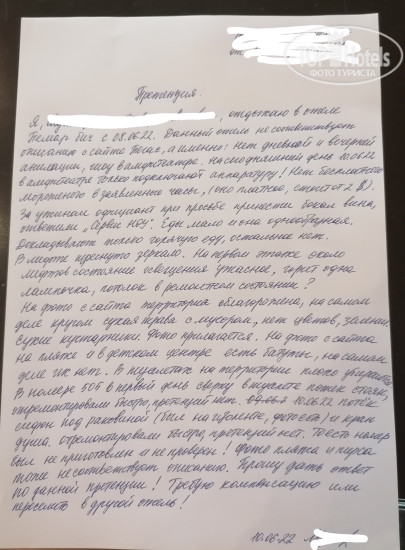 от
TopHotels
ФОТО ТУРИСТА
Претензия.
Я, , отдыхаю в отеле
Пемар Бич с 08.06.22. Данный отель не соответствует
описанию с сайта Пегас, а именно: Нет дневной и вечерней
анимации, шоу в амфитеатре. На сегодняшний день 10.06.22
в амфитеатре только подключают аппаратуру! Нет бесплатного
мороженого в заявленные часы, (оно платное, стоит от 2 $).
За ужином официант при просьбе принести бокал вина,
ответили, . Еды мало и она однообразная.
Докладывают только горячую еду, остальное нет.
В лифте треснуто зеркало. На первом этаже около
лифтов состояние освещения ужасное, горит одна
лампочка, потолок в ремонтном состоянии?
На фото с сайта территория облагорожена, на самом
деле кругом сухая трава с мусором, нет цветов, зелени
сухие кустарники. Фото прилагается. На фото с сайта
на пляже и в детском центре есть батуты, на самом
деле их нет. В туалетах на территории плохо убирают.
В номере 506 в первый день сверху в туалете потек стояк,
отремонтировали быстро, претензий нет. 10.06.22 потек
сифон под раковиной (был на изоленте, фото есть) и кран
душа. отремонтировали быстро, претензий нет. То есть номер
был не приготовлен и не проверен! Фото пляжа и пирса
тоже не соответствует описанию. Прошу дать ответ
по данной претензии! Требую компенсацию или
переселить в другой отель!
10.06.22